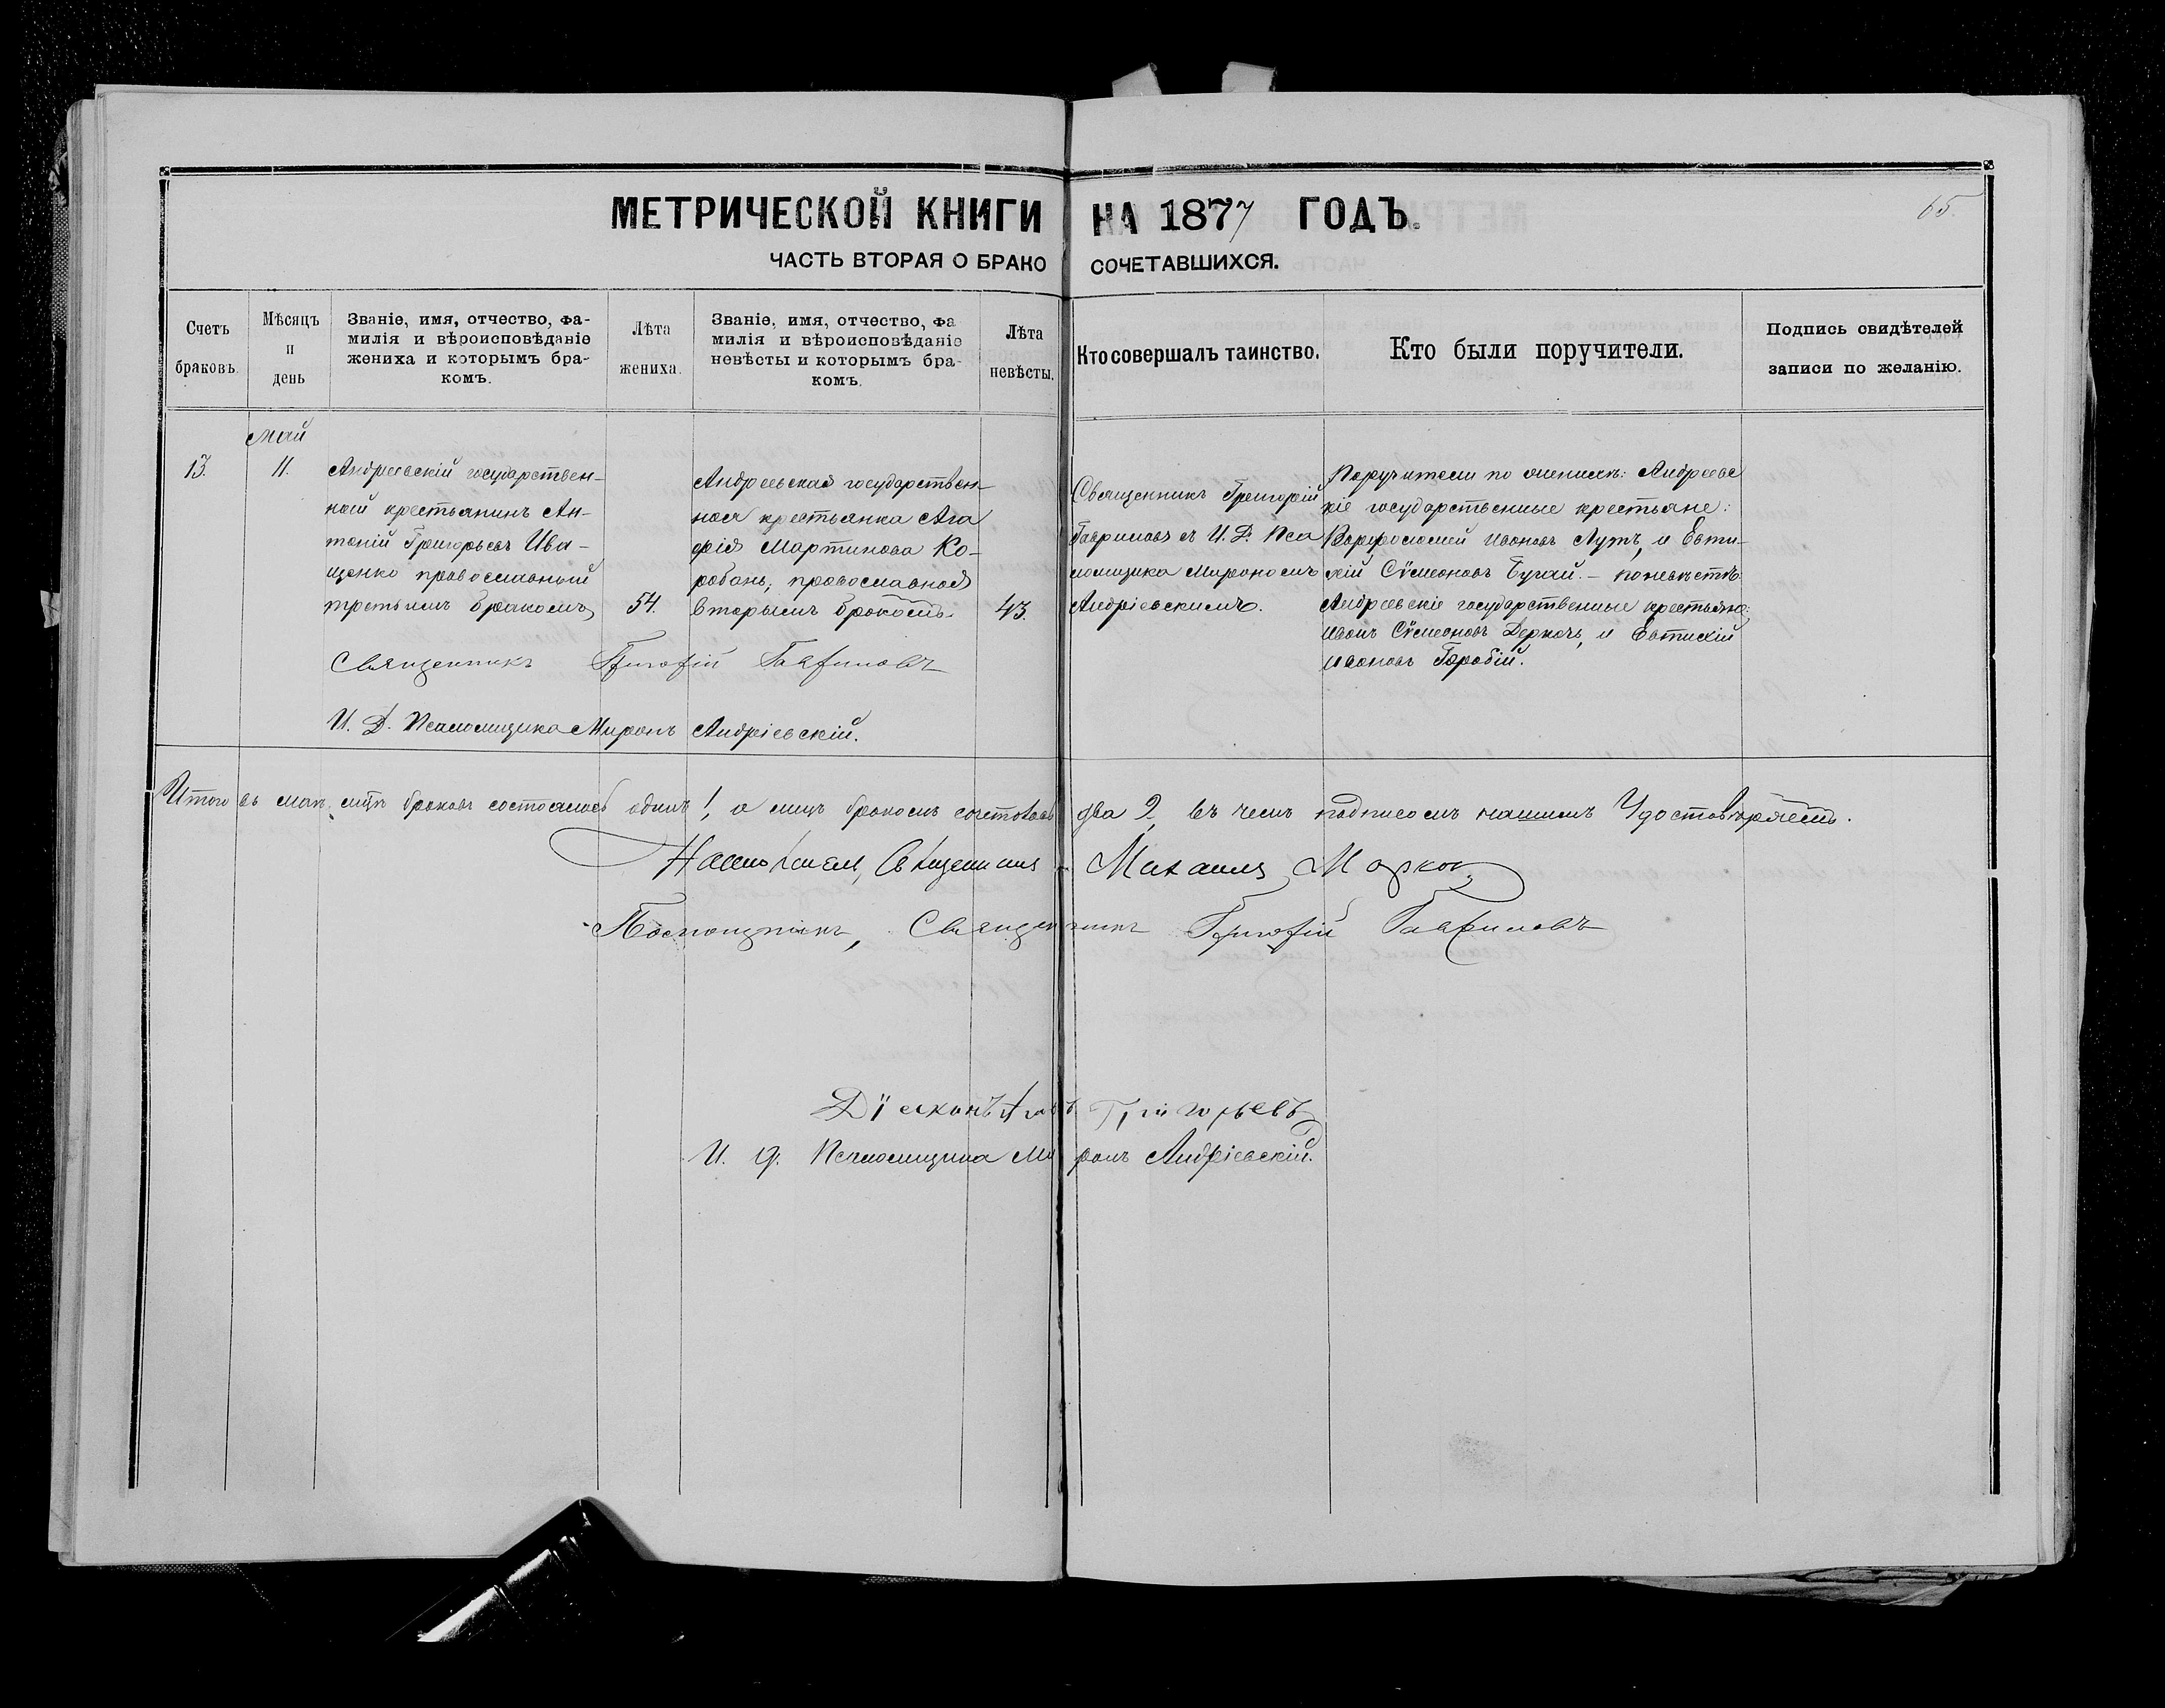 МЕТРИЧЕСКОЙ КНИГИ НА 1877 ГОДЪ.
65.
ЧАСТЬ ВТОРАЯ О БРАКО СОЧЕТАВШИХСЯ.
Счетъ браковъ.
Мѣсяцъ и день
Званіе, имя, отчество, фа-
милія и вѣроисповѣданіе
жениха и которымъ бра-
комъ.
Лѣта жениха.
Званіе, имя, отчество, фа
милія и вѣроисповѣданіе
невѣсты и которымъ бра-
комъ.
Лѣта невѣсты.
Кто совершалъ таинство.
Кто были поручители.
Подпись свидѣтелей
записи по желанію.
Май
13.
11.
Андреевскій государствен-
ный крестьянинъ Ан-
тоній Григорьевъ Ива-
щенко православный
третьимъ бракомъ,
54.
Андреевская государствен-
ная крестьянка Ага
фія Мартинова Ко-
робань, православная
вторымъ бракомъ.
43.
Священникъ Григорій
Гавриловъ съ И. Д. Пса
ломщика Мирономъ
Андріевскимъ.
Поручители по женихѣ: Андреевс
кіе государственные крестьяне:
Варфоломей Ивановъ Лутъ, и Евти-
хій Сѵмеоновъ Бугай. – по невѣстѣ:
Андреевскіе государственные крестьяне:
Иванъ Сѵмеоновъ Деркачь, и Евтихій
Ивановъ Горобій.
Священникъ Григорій Гавриловъ
И. Д. Псаломщика Миронъ Андріевскій.
Итого въ маѣ мцѣ браковъ состоялось одинъ 1, а лицъ бракомъ сочетовав два 2, въ чемъ подписомъ нашимъ Удостовѣряемъ.
Священникъ Михаилъ Марков
Помощникъ, Священникъ Григорій Гавриловъ
Діаконъ Григорьевъ
И. д. Псаломщика Миронъ Андріевскій.